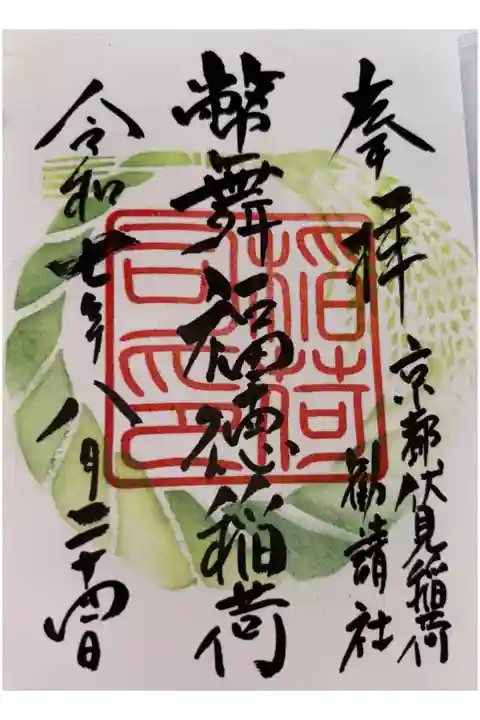 奉拝
京都伏見稲荷
勧請社
幣舞福徳稲荷
令和七年八月二十四日
稲荷